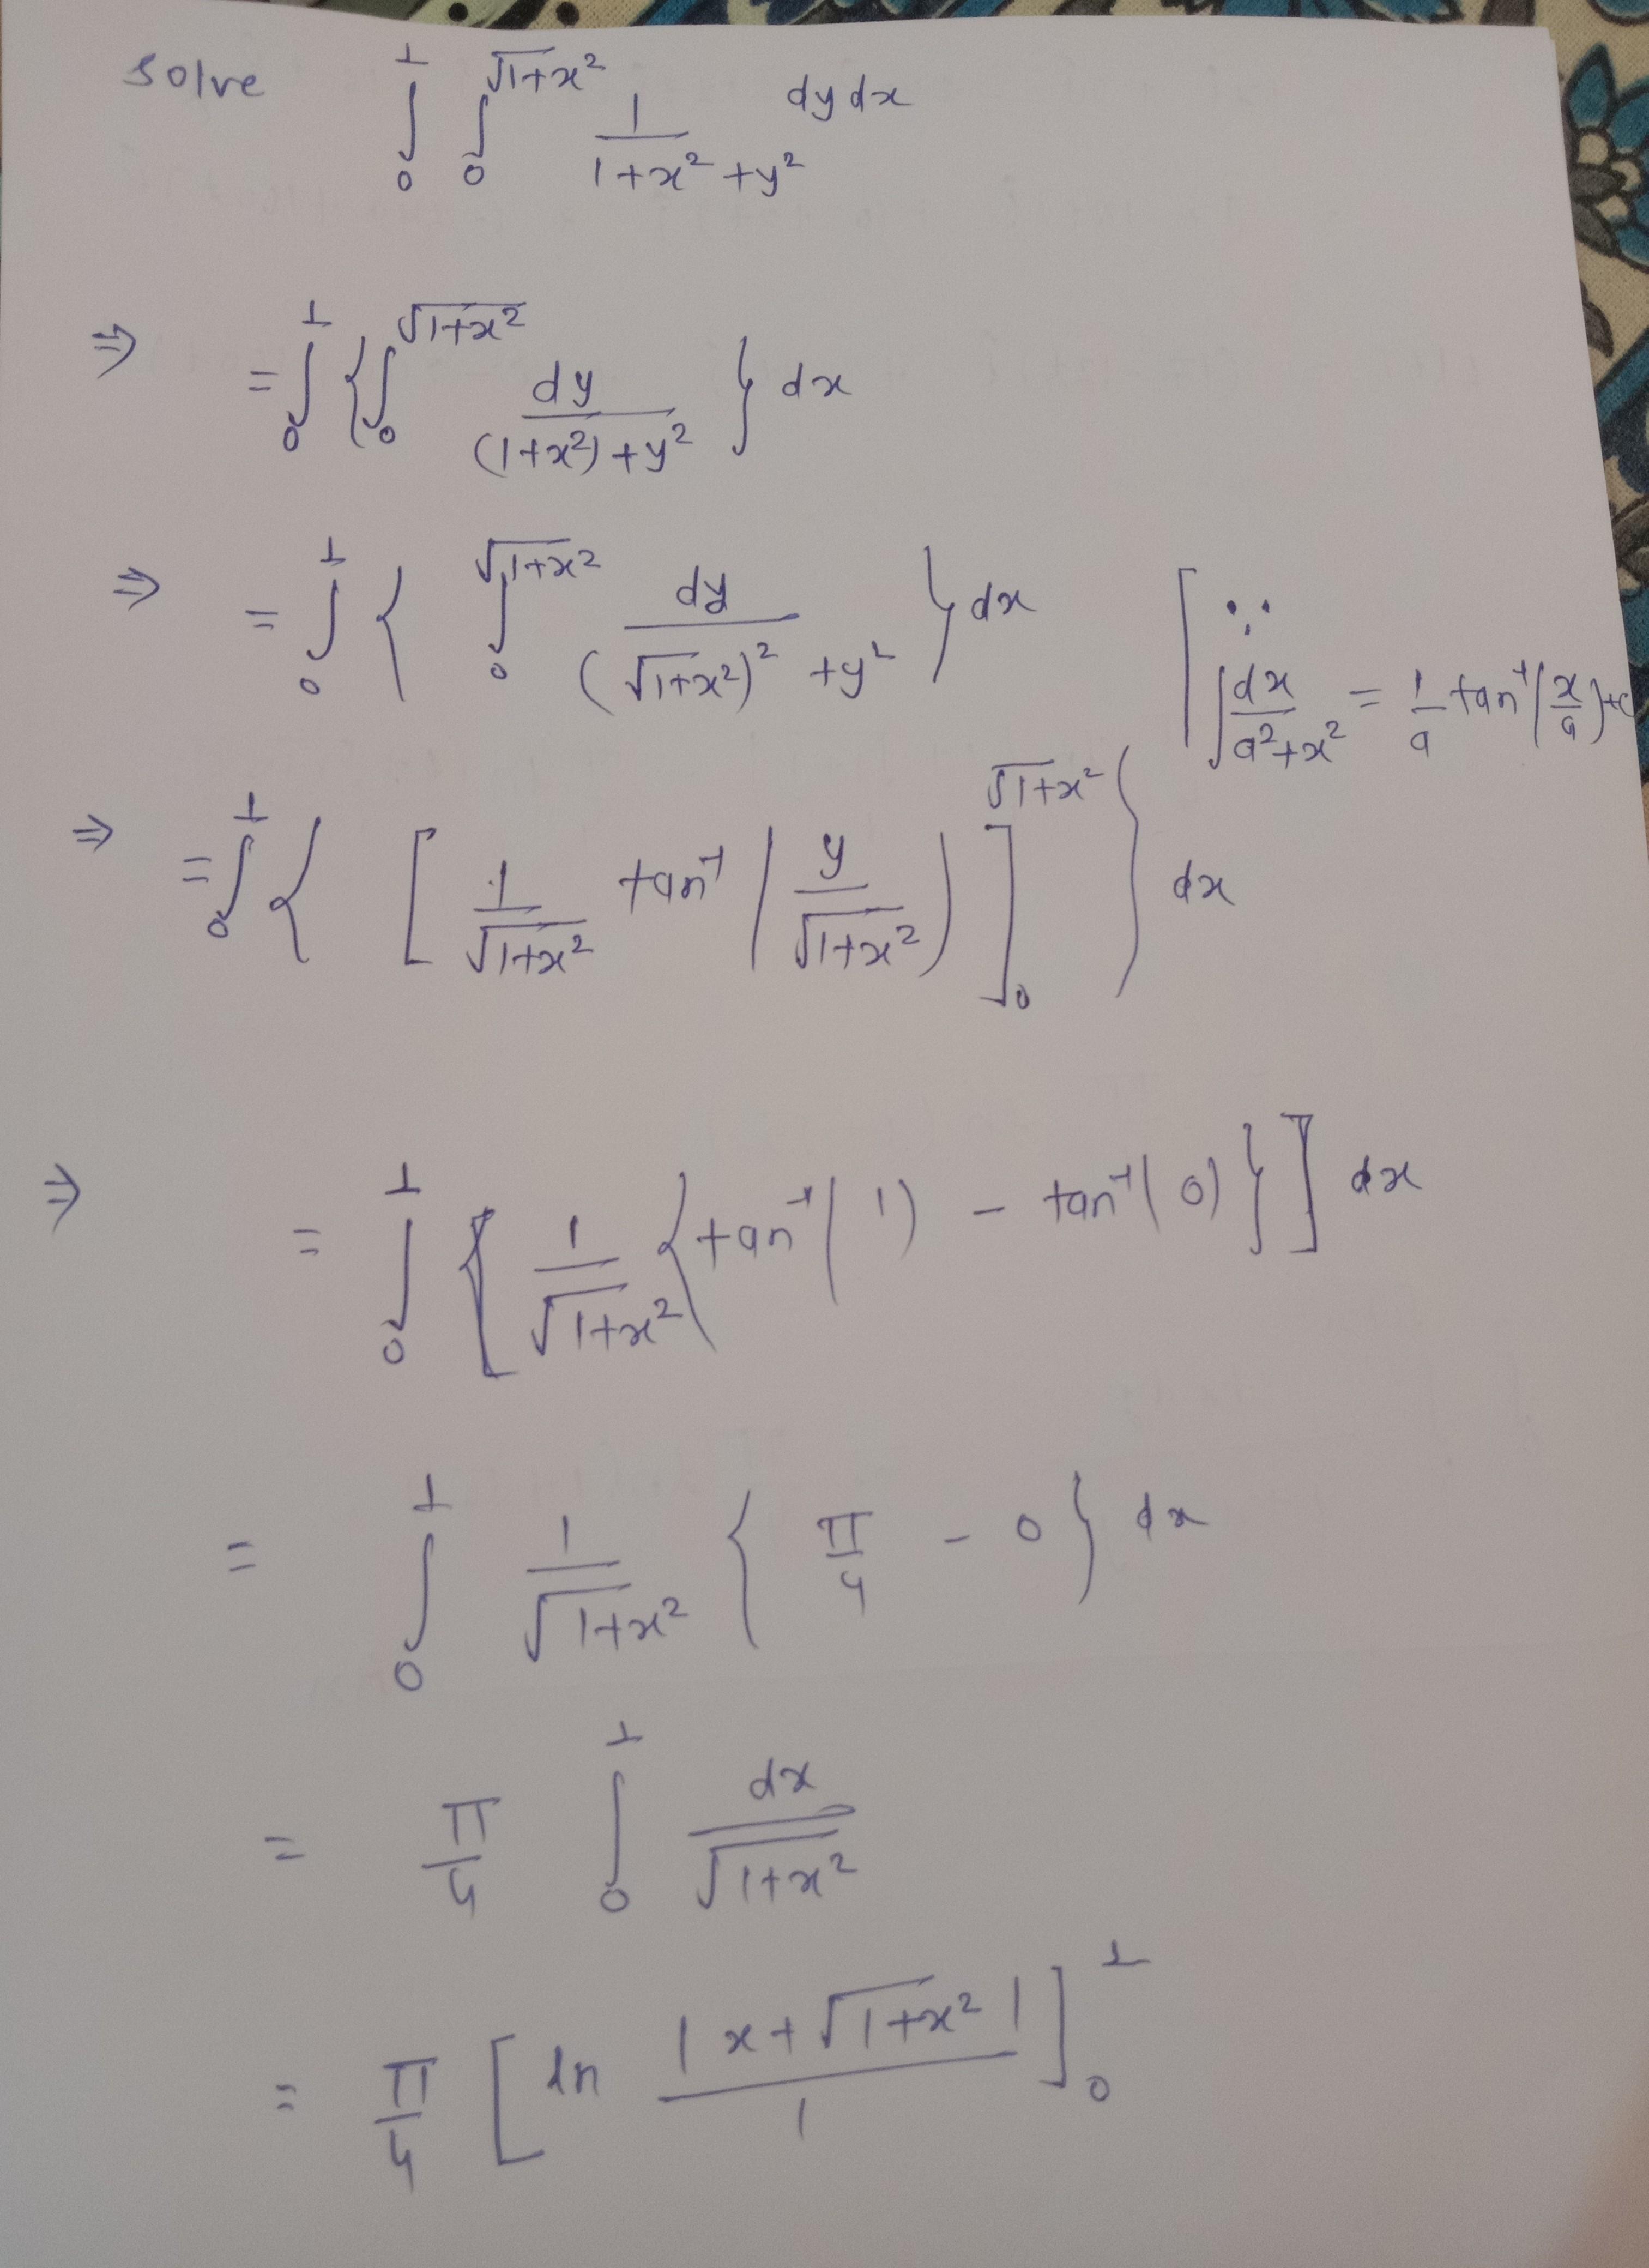 Solve ∫₀¹ ∫₀^√(1+x²) 1/(1+x²+y²) dy dx
⇒ = ∫₀¹ { ∫₀^√(1+x²) dy/((1+x²)+y²) } dx
⇒ = ∫₀¹ { ∫₀^√(1+x²) dy/((√(1+x²))²+y²) } dx [∵ ∫ dx/(a²+x²) = 1/a tan⁻¹(x/a)+c
⇒ = ∫₀¹ { [ 1/√(1+x²) tan⁻¹(y/√(1+x²)) ]₀^√(1+x²) } dx
⇒ = ∫₀¹ [ 1/√(1+x²) { tan⁻¹(1) - tan⁻¹(0) } ] dx
= ∫₀¹ 1/√(1+x²) { π/4 - 0 } dx
= π/4 ∫₀¹ dx/√(1+x²)
= π/4 [ ln |x+√(1+x²)|/1 ]₀¹